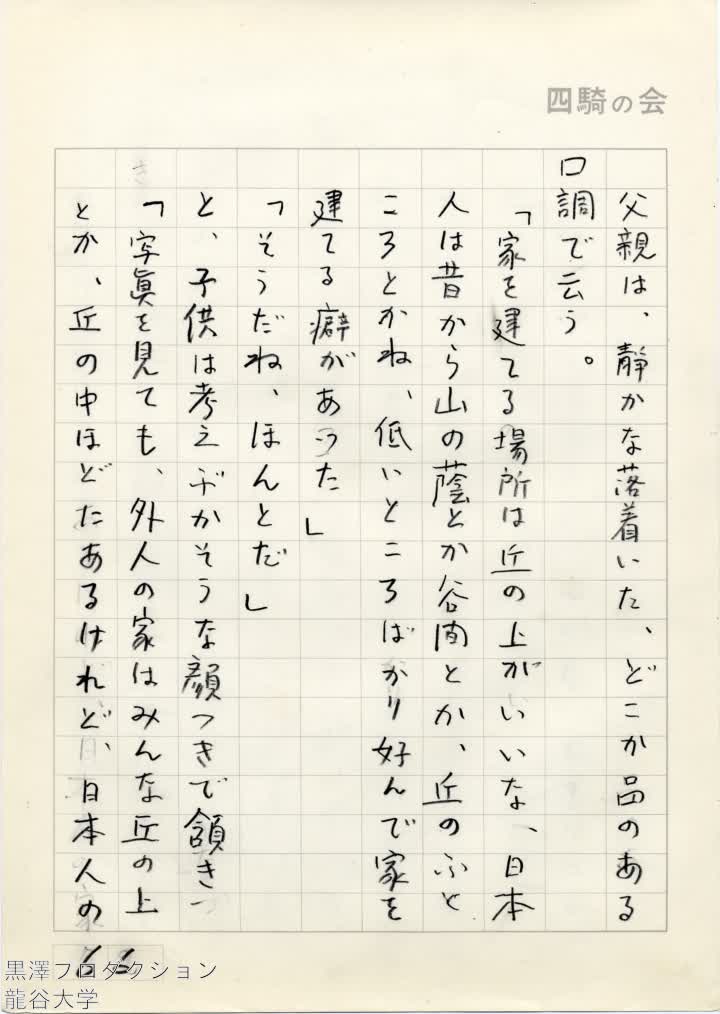 四騎の会
父親は、靜かな落着いた、どこか品のある
口調で云う。
「家を建てる場所は丘の上がいいな、日本
人は昔から山の蔭とか谷間とか、丘のふと
ころとかね、低いところばかり好んで家を
建てる癖があった」
「そうだね、ほんとだ」
と、子供は考えぶかそうな顔つきで頷きつ
「写眞を見ても、外人の家はみんな丘の上
とか、丘の中ほどたあるけれど、日本人の
黒澤プロダクション
龍谷大学